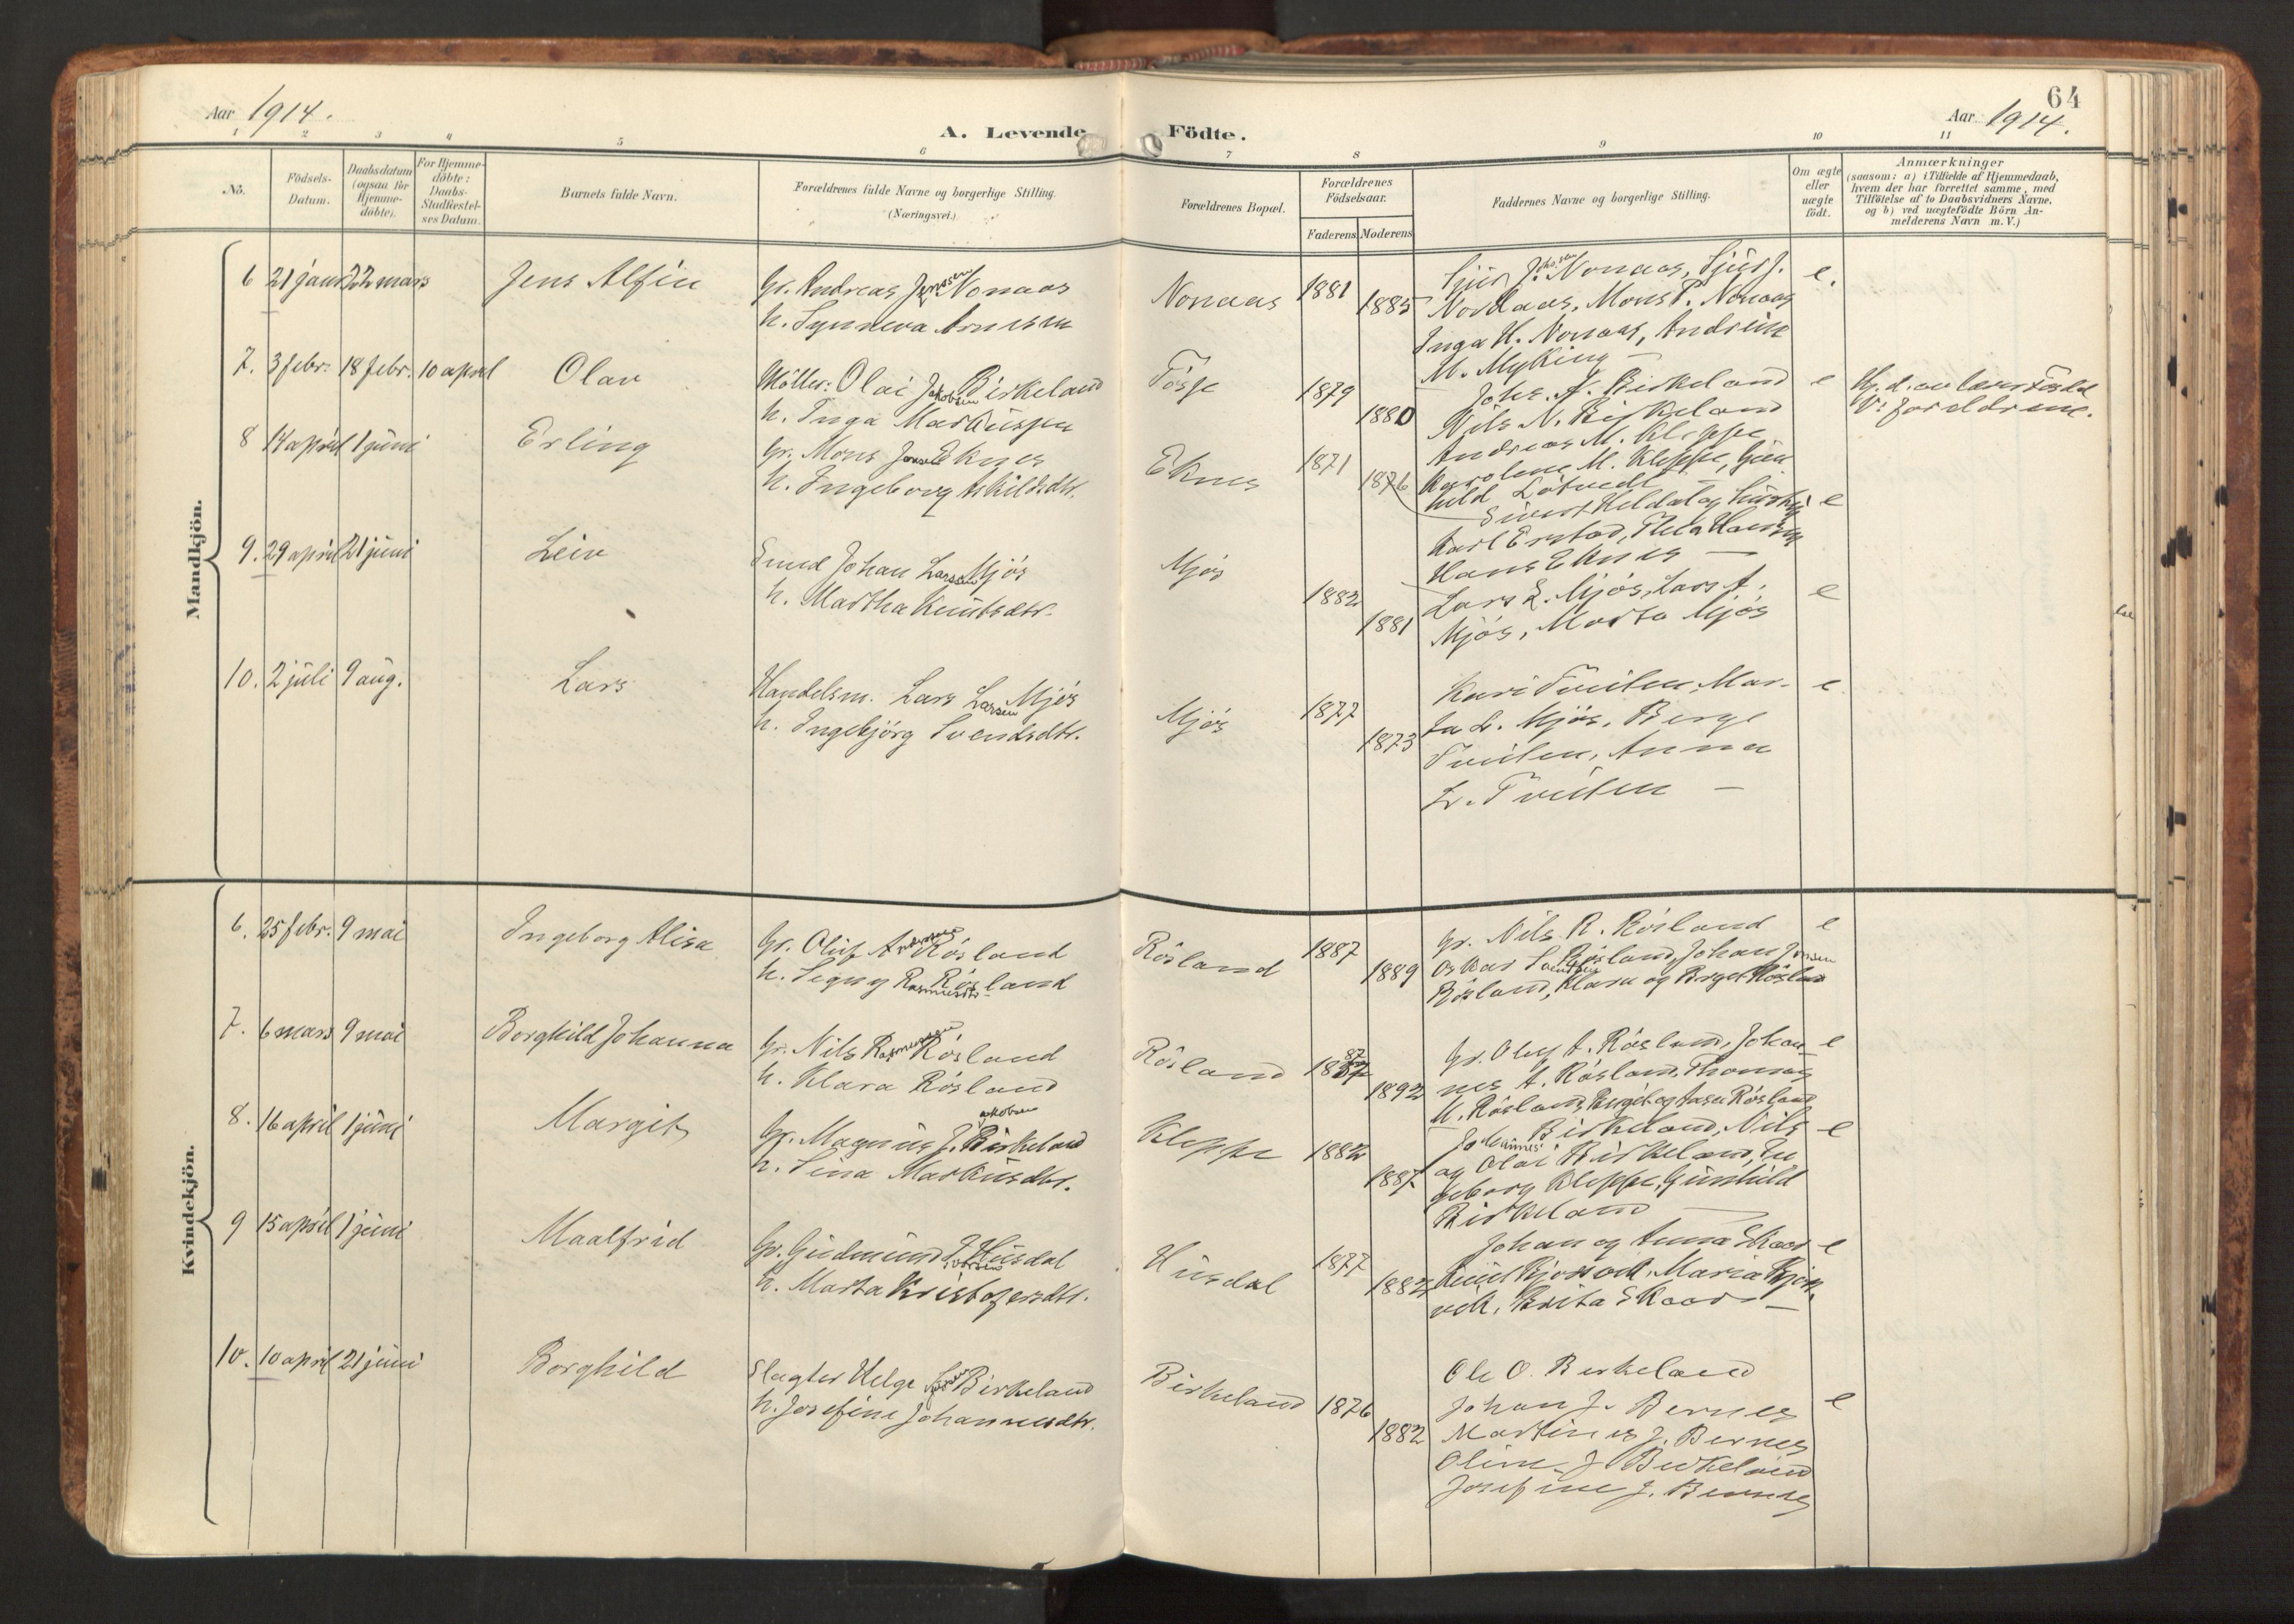 Aar 1914.
A. Levende Födte.
64
Aar 1914.
1 2 3 4 5 6 7 8 9 10 11
No.
Födsels-
Datum.
Daabsdatum
(ogsaa for
Hjemme-
döbte).
For Hjemme-
döbte:
Daabs-
Stadfæstel-
ses Datum.
Barnets fulde Navn.
Forældrenes fulde Navne og borgerlige Stilling.
(Næringsvei.)
Forældrenes Bopæl.
Forældrenes
Födselsaar.
Faderens Moderens
Faddernes Navne og borgerlige Stilling.
Om ægte
eller
uægte
födt.
Anmærkninger
(saasom: a) i Tilfælde af Hjemmedaab,
hvem der har forrettet samme, med
Tilföielse af to Daabsvidners Navne.
og b) ved uægtefödte Börn An-
melderens Navn m. V.)
Mandkjön.
6 21 janr 22 mars Jens Alfin
Gr. Andreas Jensen Nonaas
h. Synneva
Nonaas 1881 1885
Nonaas, Sjur J.
Nordaas, Mons P. Nonaas
Inga H. Nonaas, Andrine
M. Myking —
e.
7. 3 febr. 18 febr. 10 april Olav
Möller: Olai Jakobsen Birkeland
h. Inga Markuspr
Fosse 1879 1880
Johs. N. Birkeland
Nils N. Birkeland
Andreas M. Kleppe
Karolene M. Kleppe, Gun
hild Lötvedt —
e
Hj. d. av lærer Fosse
V: foreldrene.
8 14 april 1 juni Erling
Gr. Mons Jonsen Eknes
h. Ingeborg Askildsdtr.
Eknes 1871 1876
Sivert Heldal og hustru
Karl Erstad, Thea Hansen
Hans Eknes —
e
9. 29 april 21 juni Leiv
Smed Johan Larsen Mjös
h. Martha Knutsdtr.
Mjös 1882 1881
Lars L. Mjös, Lars A.
Mjös, Marta Mjös
e
10. 2 juli 9 aug. Lars
Handelsm. Lars Larsen Mjös
h. Ingebjörg Svendsdtr.
Mjös 1877 1873
Kari Tveiten, Mar-
ta L. Mjös, Berge
Tveiten, Anna
L. Tveiten —
e
Kvindekjön.
6. 25 febr. 9 mai Ingeborg Alisa
Gr. Oluf Andersen Rösland
h. Signy Rasmusdtr Rösland
Rösland 1887 1889
Gr. Nils R. Rösland
Oskar Svendsen Rösland, Johan Jonsen
Rösland, Klara og Birget Rösland
e
7. 6 mars 9 mai Borghild Johanna
Gr. Nils Rasmussen Rösland
h. Klara Rösland
Rösland 1887 1892
Gr. Oluf A. Rösland, Johan-
nes A. Rösland, Thomas
M. Rösland, Birgit og Aasa Rösland
e
8. 16 april 1 juni Margit
Gr. Magnus Jakobsen Birkeland
h. Sina Markusdtr.
Kleppe 1882 1887
Johannes Birkeland, Nils
og Olai Birkeland, In
geborg Kleppe, Gunhild
Birkeland —
e
9 15 april 1 juni Maalfrid
Gr. Gudmund Iversen Husdal
h. Marta Kristofersdtr.
Husdal 1877 1882
Johan og Anna Skaar
Knut Bjorvik, Maria Bjor
vik, Brita Skaar —
e
10. 10 april 21 juni Borghild
Slagter Helge Birkeland
h. Josefine Johannesdtr.
Birkeland 1876 1882
Ole O. Birkeland
Johan J. Bernes
Martines J. Bernes
Oline J. Birkeland
Josefine J. Bernes
e